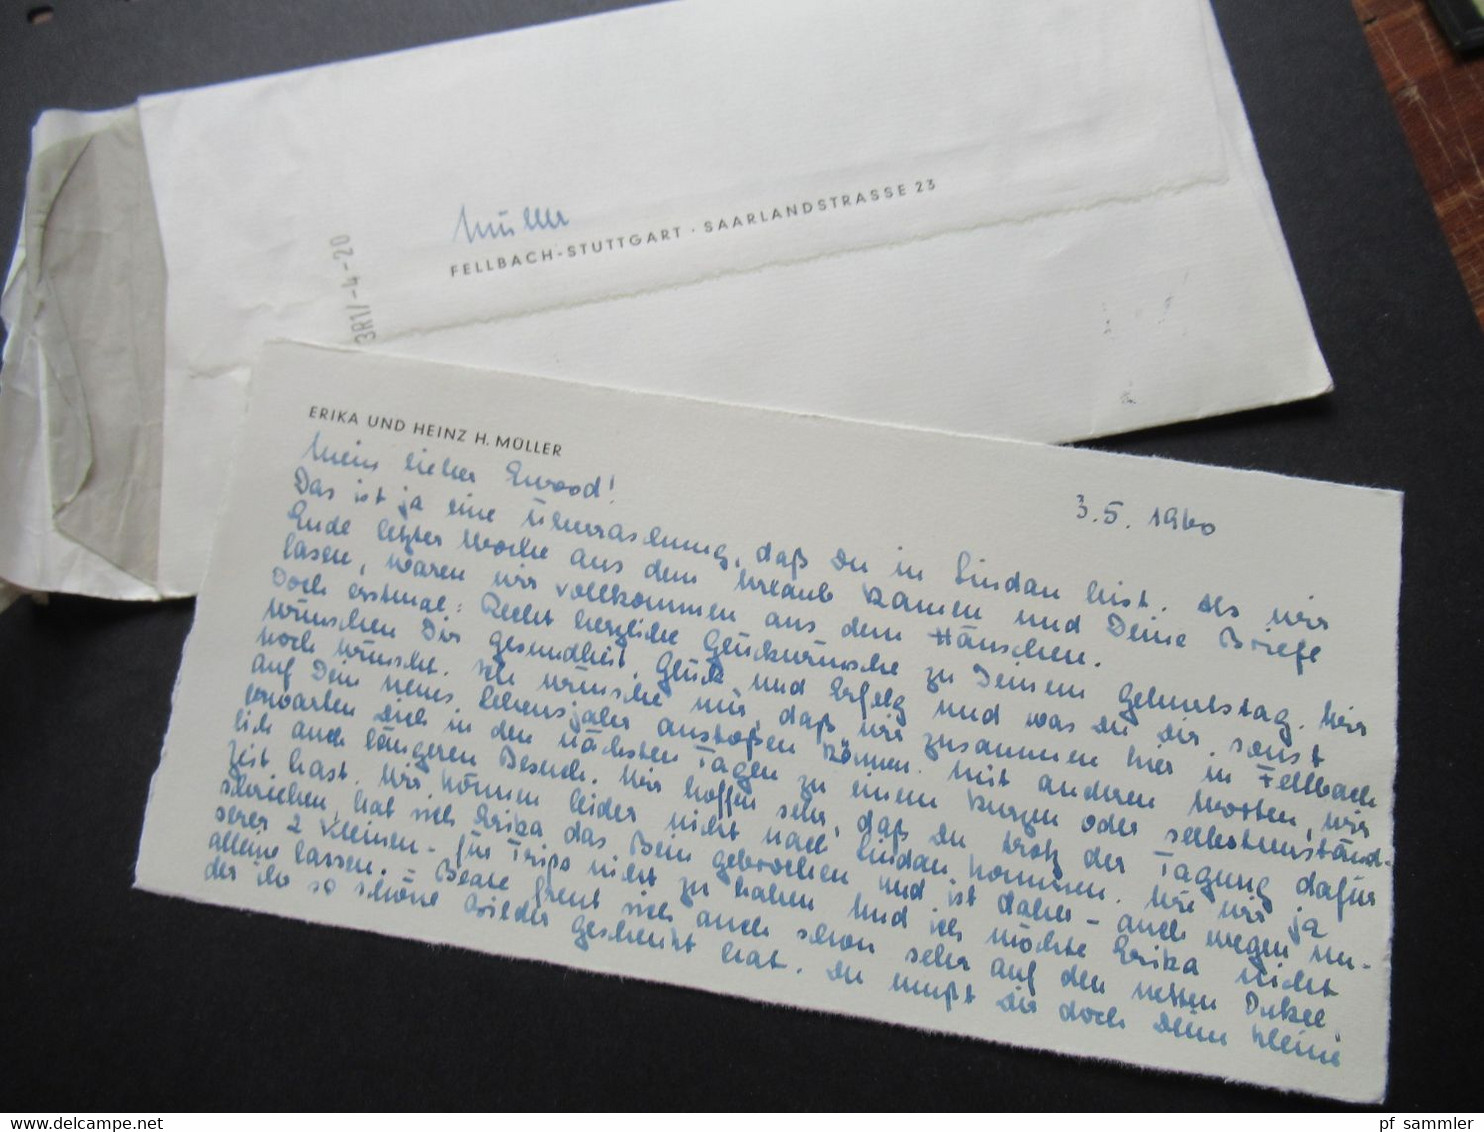 Müller
FELLBACH-STUTTGART · SAARLANDSTRASSE 23
3R1/-4-20
ERIKA UND HEINZ H. MÜLLER
3. 5. 1960
Mein lieber Enwood!
Das ist ja eine Überraschung, daß Du in Lindau bist. Als wir
Ende letzter Woche aus dem Urlaub kamen und Deine Briefe
lasen, waren wir vollkommen aus dem Häuschen.
Doch erstmal: Recht herzliche Glückwünsche zu Deinem Geburtstag. Wir
wünschen Dir Gesundheit, Glück und Erfolg und was Du Dir sonst
noch wünscht. Ich wünsche mir, daß wir zusammen hier in Fellbach
auf Dein neues Lebensjahr anstoßen können. Mit anderen Worten, wir
erwarten Dich in den nächsten Tagen zu einem kurzen oder selbstverständ-
lich auch längeren Besuch. Wir hoffen sehr, daß Du trotz der Tagung dafür
Zeit hast. Wir können leider nicht nach Lindau kommen. Wie wir ja
schrieben, hat sich Erika das Bein gebrochen und ist daher - auch wegen un-
serer 2 Kleinen - für Trips nicht zu haben. Und ich möchte Erika nicht
alleine lassen. Beate freut sich auch schon sehr auf den netten Onkel,
der ihr so schöne Bilder geschenkt hat. Du mußt Dir doch Deine kleine
pf sammler
www.delcampe.net